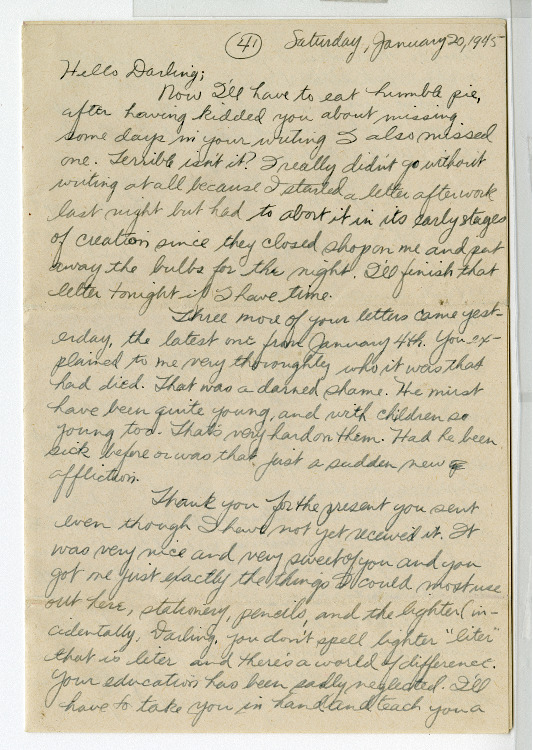 41 Saturday, January 20, 1945
Hello Darling;
Now I'll have to eat humble pie,
after having kidded you about missing
some days in your writing I also missed
one. Terrible isn't it? I really didn't go without
writing at all because I started a letter after work
last night but had to abort it in its early stages
of creation since they closed shop on me and put
away the bulbs for the night. I'll finish that
letter tonight if I have time.
Three more of your letters came yest-
erday, the latest one from January 4th. You ex-
plained to me very thoroughly who it was that
had died. That was a darned shame. He must
have been quite young, and with children so
young too. That's very hard on them. Had he been
sick before or was that just a sudden new
affliction.
Thank you for the present you sent
even though I have not yet received it. It
was very nice and very sweet of you and you
got me just exactly the things I could most use
out here, stationery, pencils, and the lighter (in-
cidentally, Darling, you don't spell lighter "liter"
that is liter and there's a world of difference.
Your education has been sadly neglected. I'll
have to take you in hand and teach you a